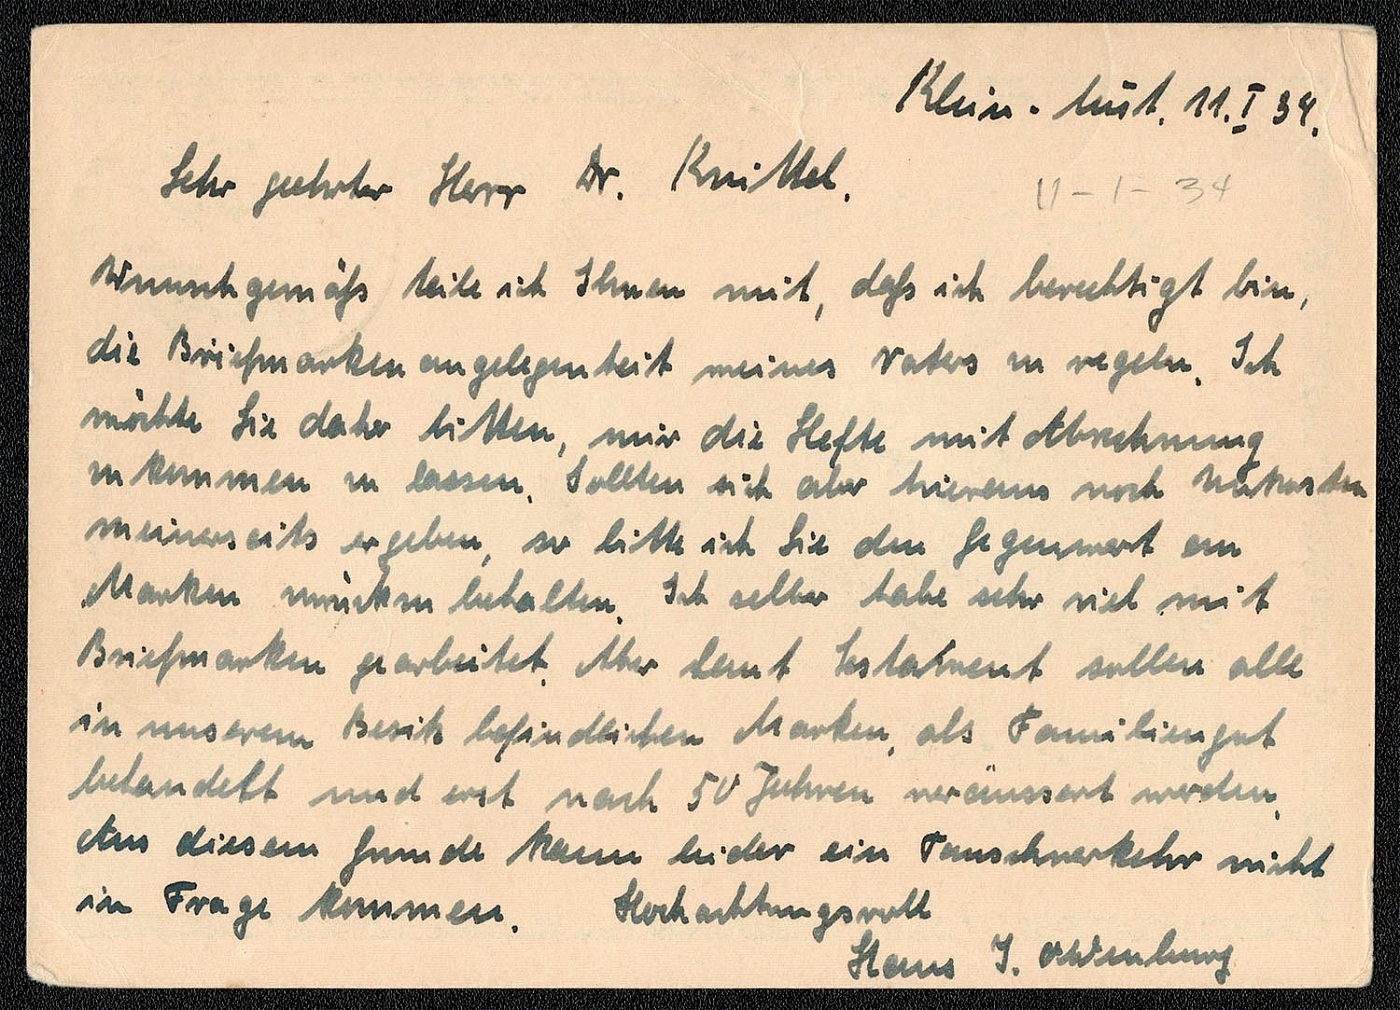 Klein - 11.I 34.
Sehr geehrter Herr Dr. Knittel.
11 - 1 - 34
Wunschgemäß teile ich Ihnen mit, daß ich berechtigt bin,
die Briefmarkenangelegenheit meines Vaters zu regeln. Ich
möchte Sie daher bitten, mir die Hefte mit Abrechnung
zukommen zu lassen. Sollten sich aber hieraus noch Unkosten
meinerseits ergeben, so bitte ich Sie den Gegenwert an
Marken zurückzubehalten. Ich selber habe sehr viel mit
Briefmarken gearbeitet. Aber laut Testament sollen alle
in unserem Besitz befindlichen Marken, als Familiengut
behandelt und erst nach 50 Jahren veräussert werden.
Aus diesem Grunde kann leider ein Tauschverkehr nicht
in Frage kommen. Hochachtungsvoll
Hans J. Oldenburg